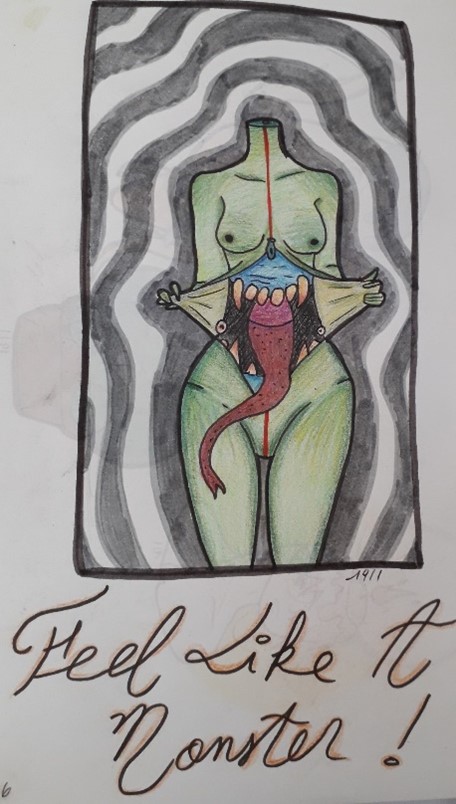 19/1
Feel Like A
Monster !
6